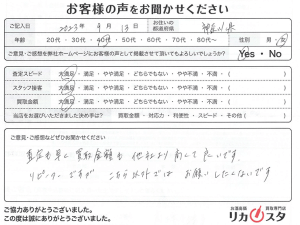 お客様の声をお聞かせください
ご記入日 2023年 9月 13日 お住いの都道府県 神奈川県
年齢 20代・30代・40代・50代・60代・70代・80代〜 性別 男・女
ご意見・ご感想を弊社ホームページにお客様の声として掲載させて頂いてもよろしいでしょうか? Yes・No
査定スピード 大満足・満足・やや満足・どちらでもない・やや不満・不満・( )
スタッフ接客 大満足・満足・やや満足・どちらでもない・やや不満・不満・( )
買取金額 大満足・満足・やや満足・どちらでもない・やや不満・不満・( )
当店をお選びいただきました決め手は? 買取金額・対応力・利便性・スピード・その他( )
ご意見・ご感想などぜひお聞かせください
査定も早く買取金額も他社より高くて良いです。
リピーターですが こちら以外では お願いしたくないです
ご協力ありがとうございました。
この度は誠にありがとうございました。
お酒買取専門店
リカスタ